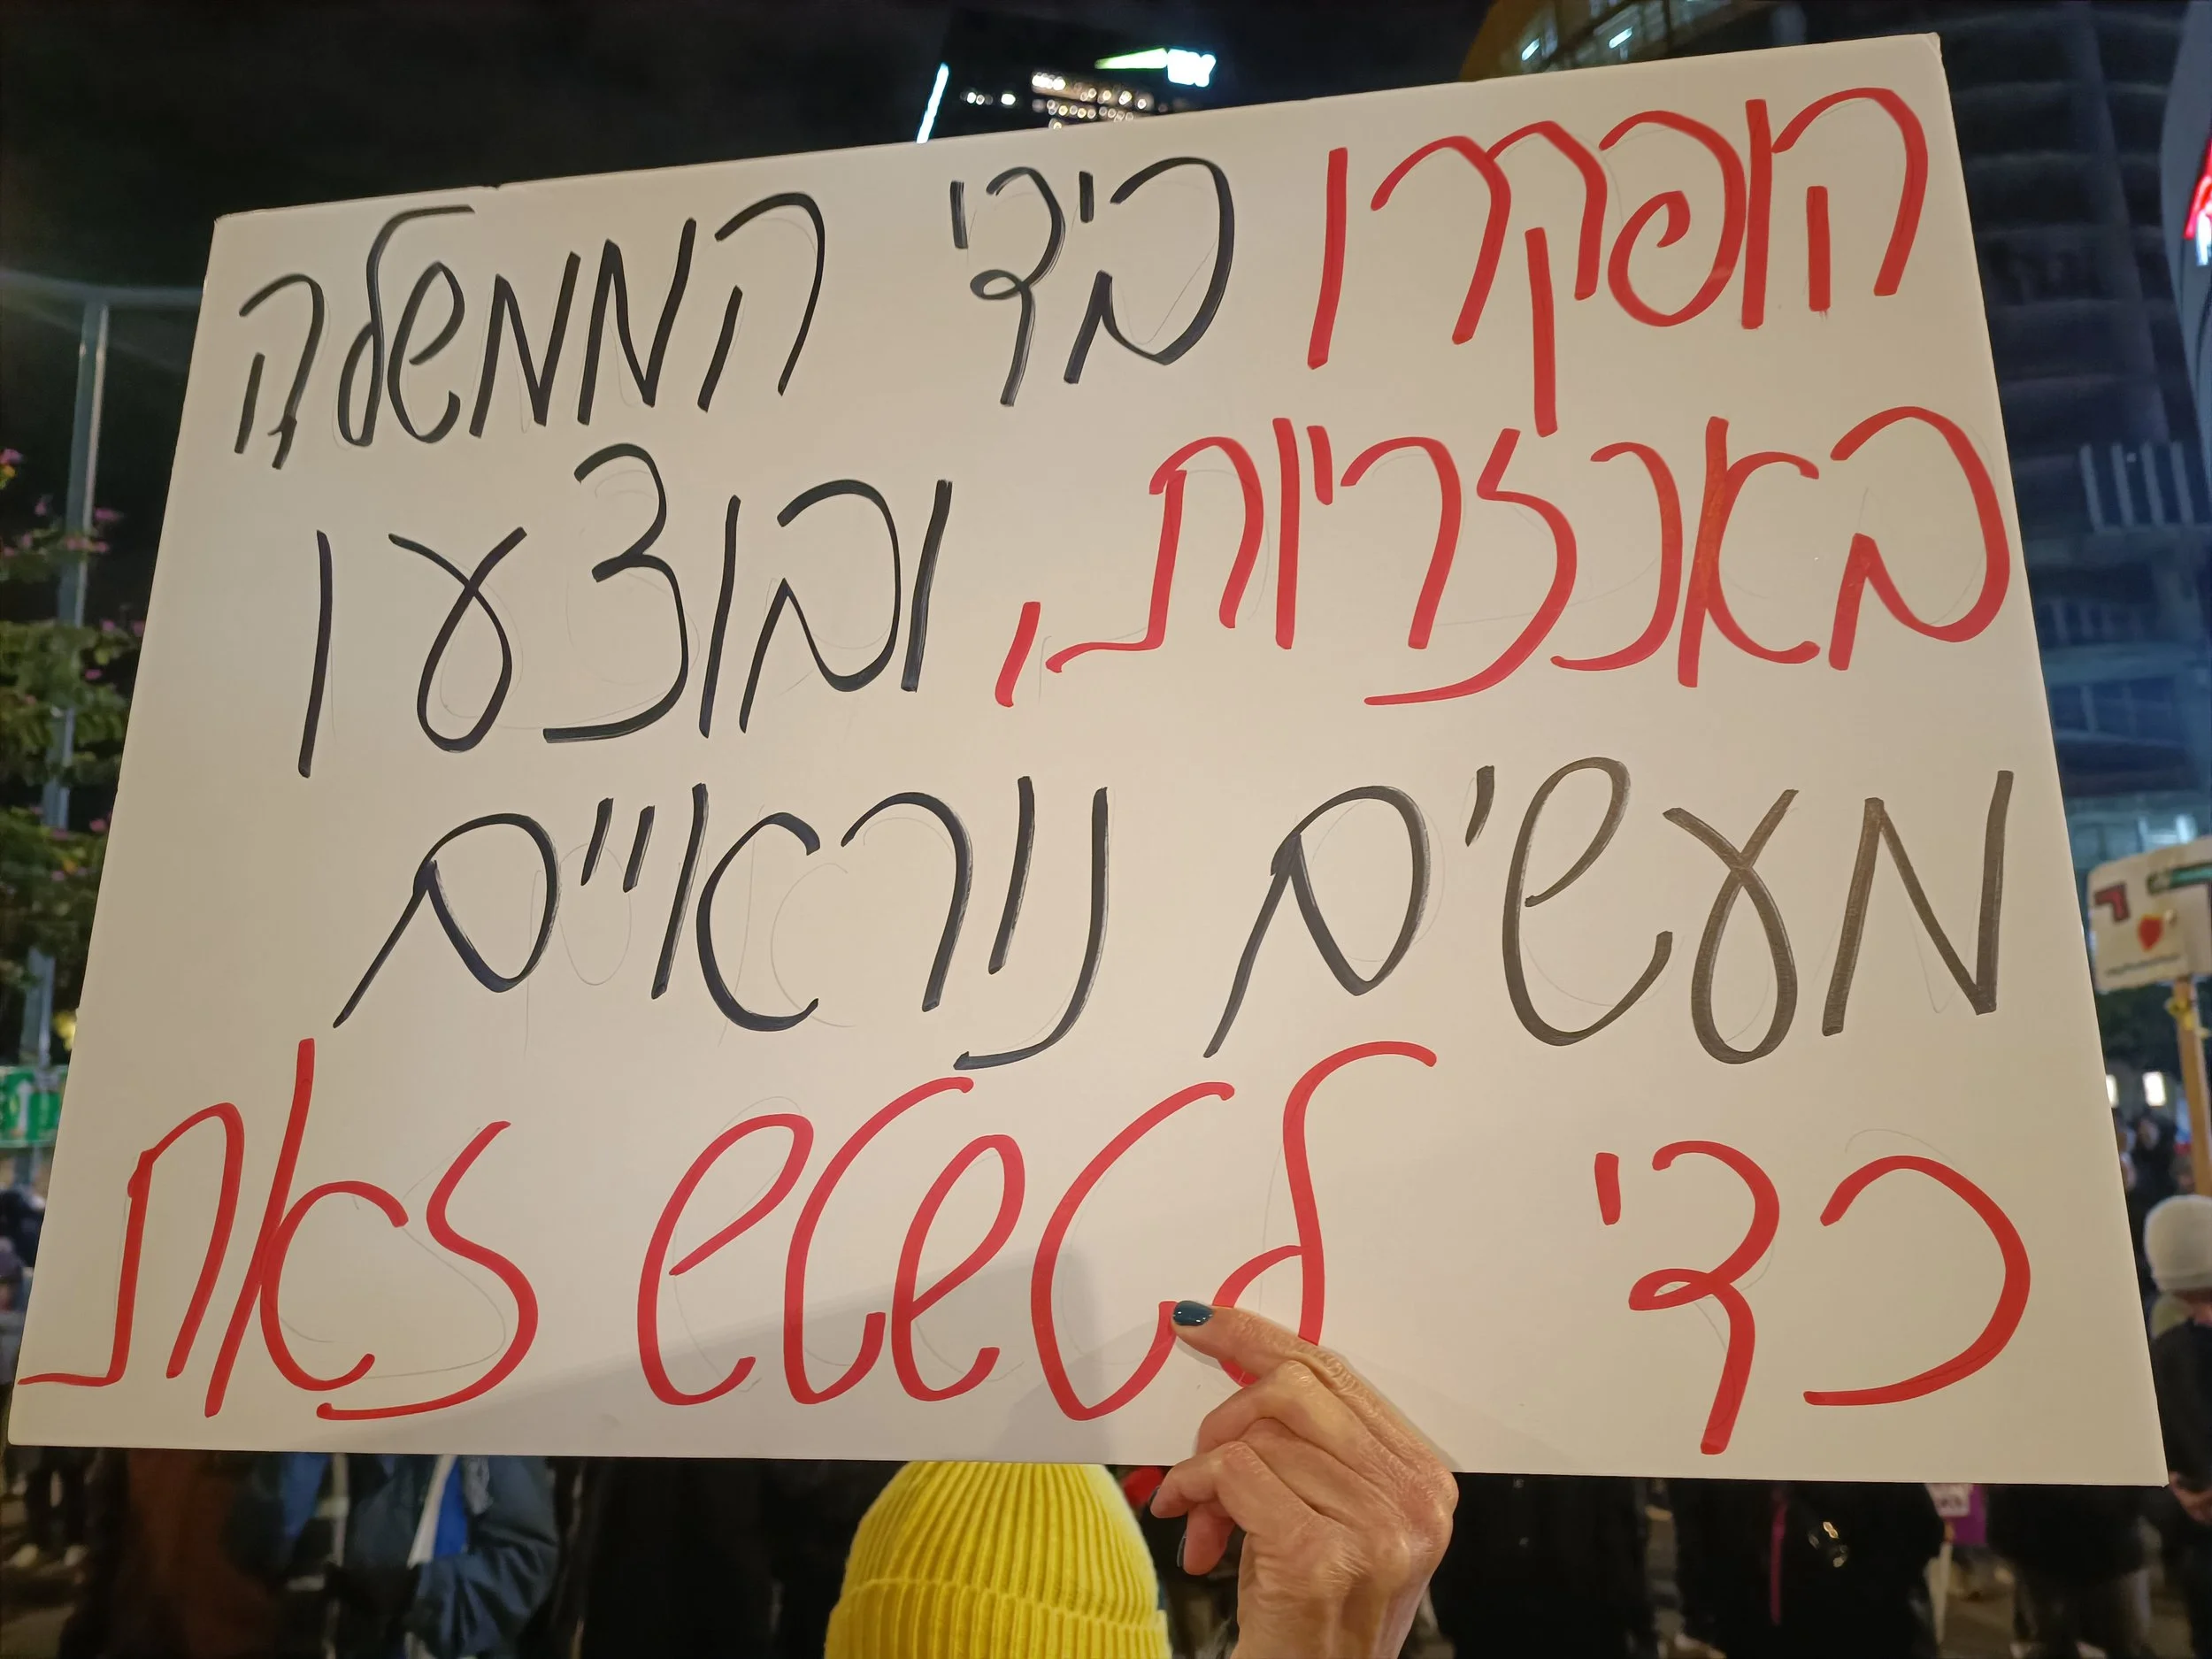 הופקרו בידי הממשלה
באכזריות, ובוצעו
מעשים נוראיים
כדי לטשטש זאת